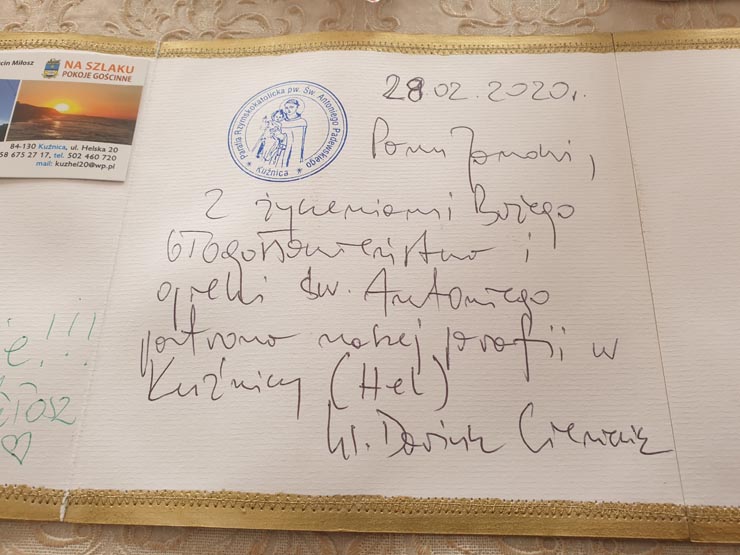 cin Miłosz
NA SZLAKU
POKOJE GOŚCINNE
84-130 Kuźnica, ul. Helska 20
58 675 27 17, tel. 502 460 720
mail: kuzhel20@wp.pl
Parafia Rzymskokatolicka pw. Św. Antoniego Padewskiego
Kuźnica
28.02.2020r.
Z życzeniami Bożego
błogosławieństwa i
opieki św. Antoniego
patrona naszej parafii w
Kuźnicy (Hel)
ks.
!!!